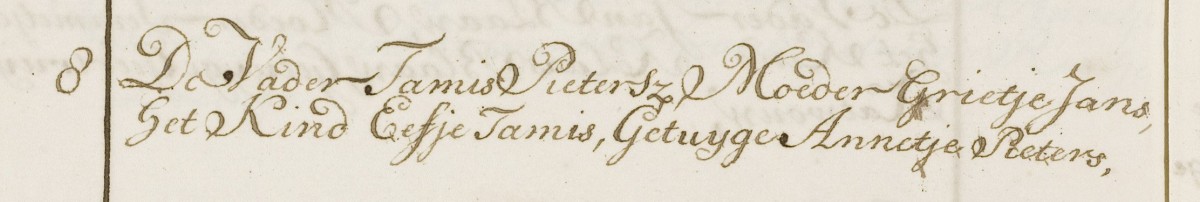 8 De Vader Tamis Pietersz, Moeder Grietje Jans,
het Kind Eefje Tamis, Getuyge Annetje Pieters,